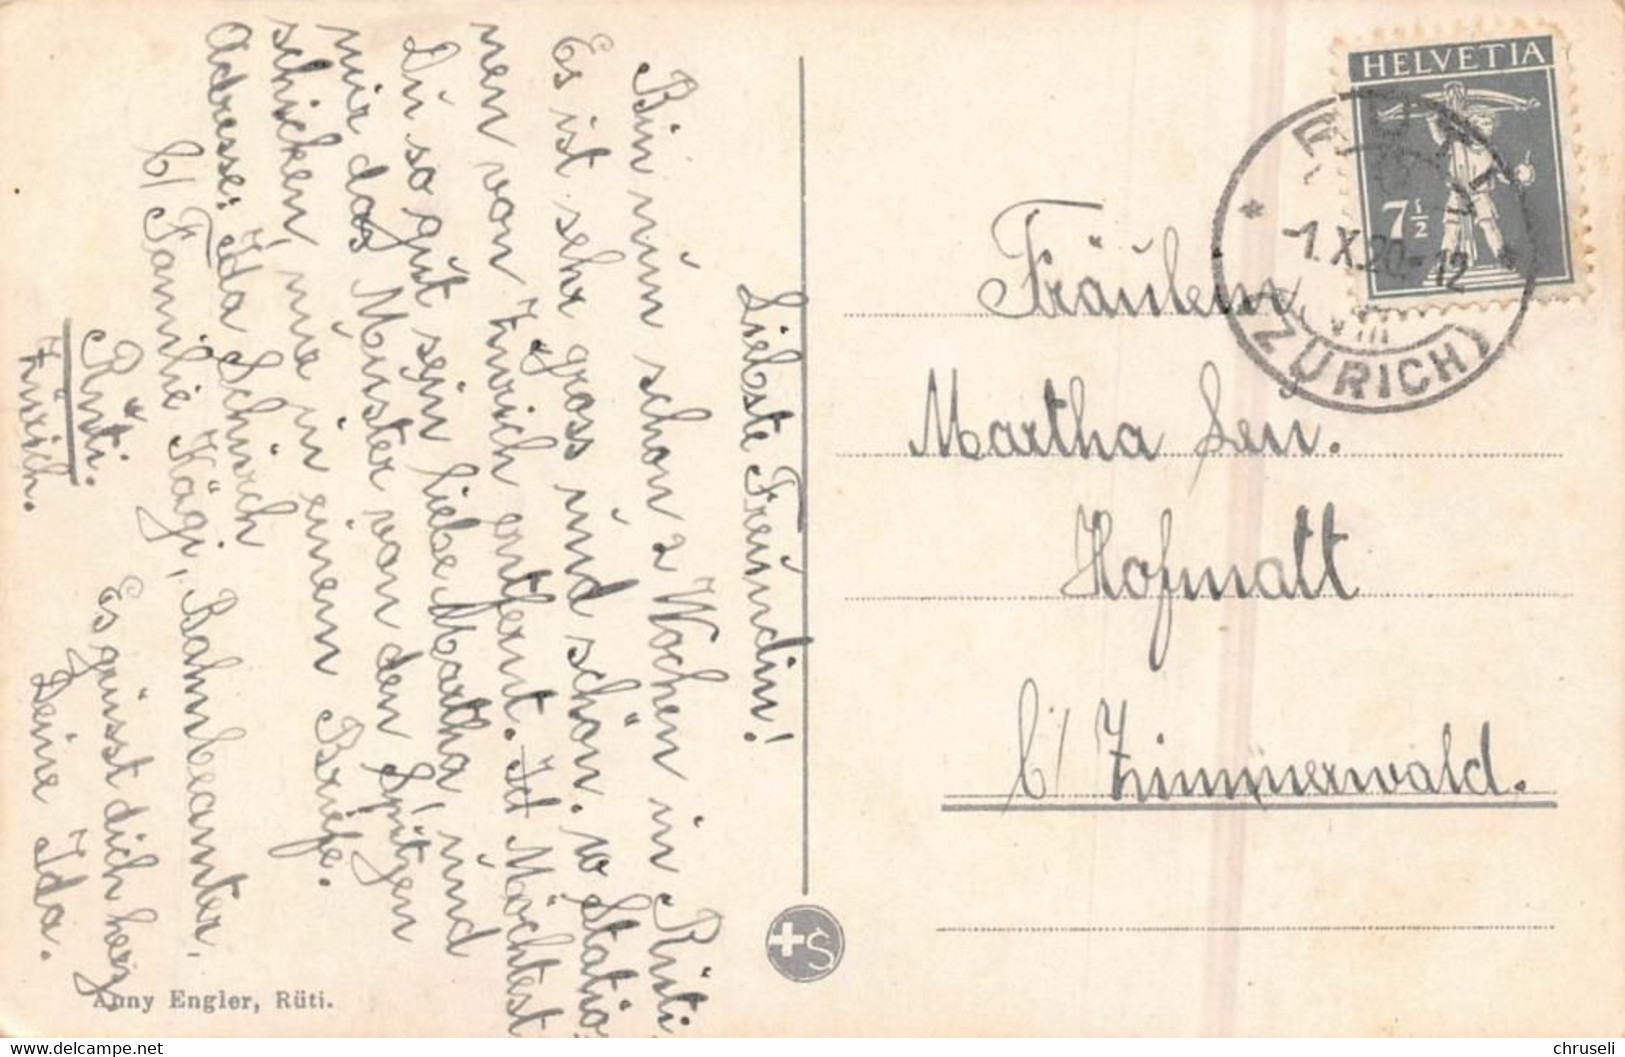 Liebste Freundin!
Bin nun schon 2 Wochen in Rüti.
Es ist sehr gross und schön. 10 Statio-
nen von Zürich entfernt. Möchtest
Du so gut sein liebe Martha, und
mir das Muster von den Spitzen
schicken, nur in einem Briefe.
Adresse: Ida Schürch
b/ Familie Kägi, Bahnbeamter,
Rüti.
Zürich.
Es grüsst dich herz
Deine Ida.
Anny Engler, Rüti.
S
HELVETIA
7½
RÜTI
-1.X.20-12
(ZÜRICH)
Fräulein
Martha
Hofmatt
b/ Zimmerwald.
chruseli
www.delcampe.net